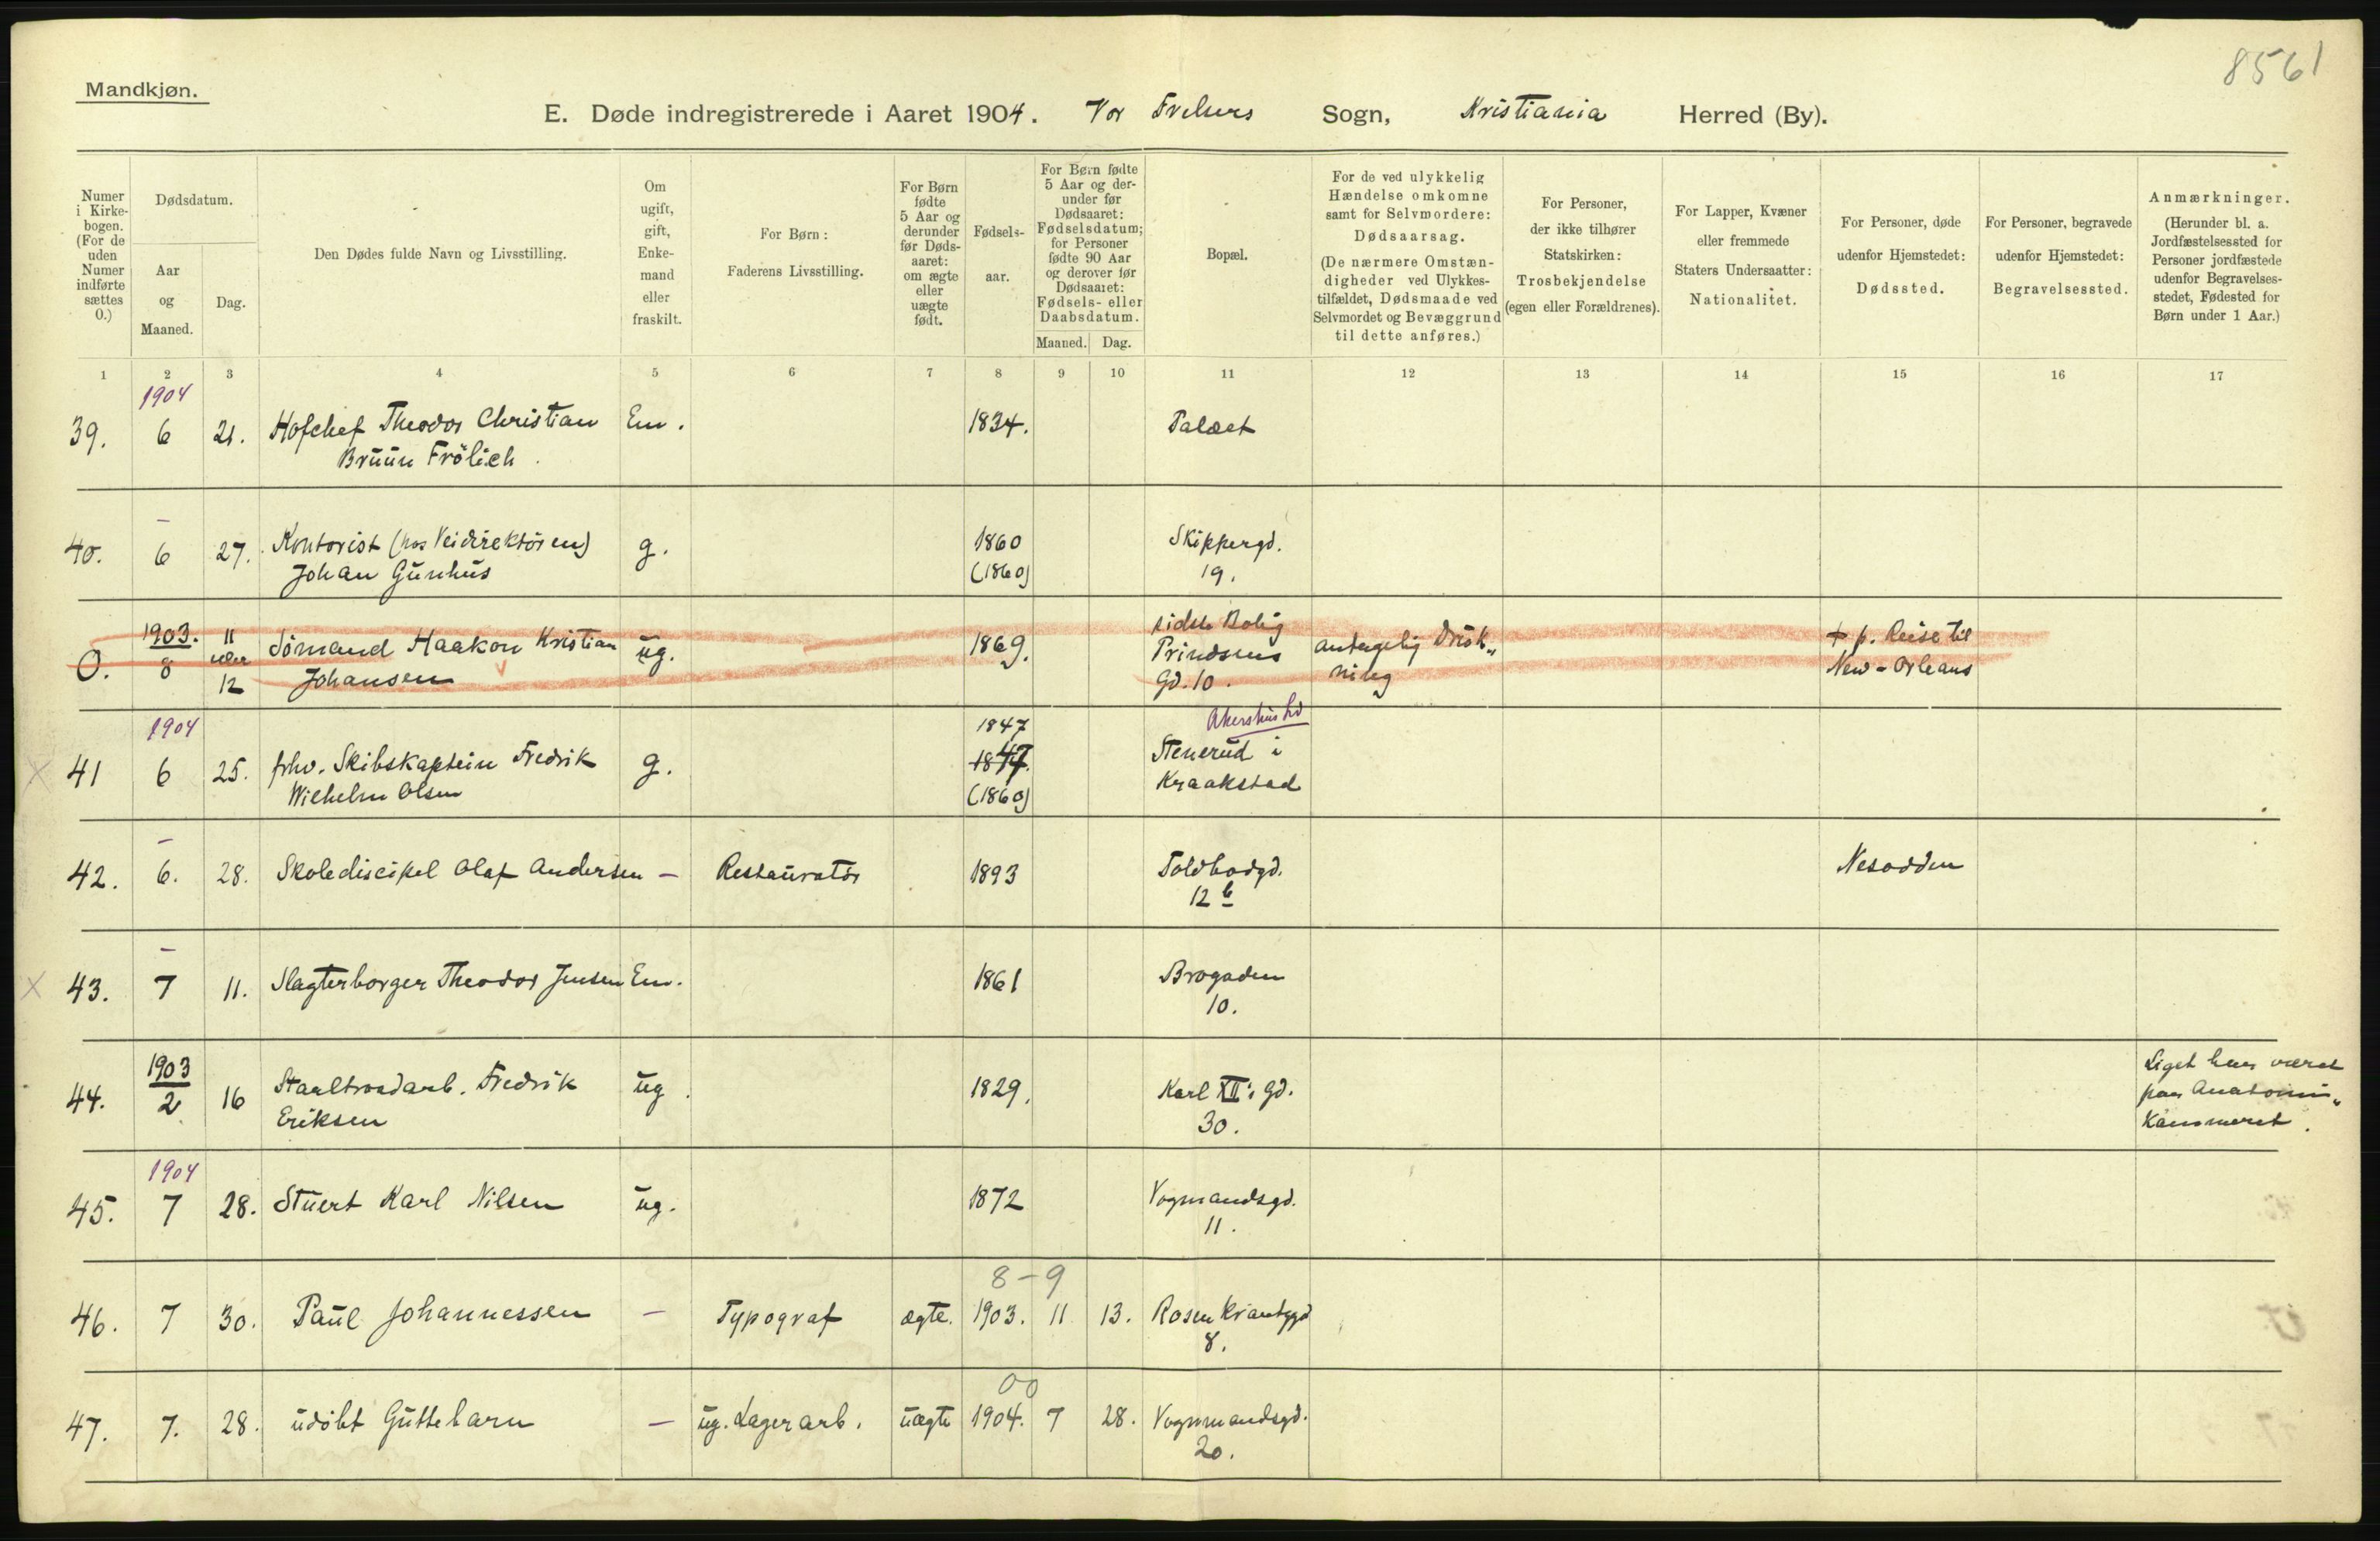 8561
Mandkjøn.
E. Døde indregistrerede i Aaret 1904. Vor Frelsers Sogn, Kristiania Herred (By).
Numer i Kirkebogen. (For de uden Numer indførte sættes 0.)
Dødsdatum.
Aar og Maaned.
Dag.
Den Dødes fulde Navn og Livsstilling.
Om ugift, gift, Enkemand eller fraskilt.
For Børn: Faderens Livsstilling.
For Børn fødte 5 Aar og derunder før Dødsaaret: om ægte eller uægte født.
Fødselsaar.
For Børn fødte 5 Aar og derunder før Dødsaaret: Fødselsdatum; for Personer fødte 90 Aar og derover før Dødsaaret: Fødsels- eller Daabsdatum.
Maaned. Dag.
Bopæl.
For de ved ulykkelig Hændelse omkomne samt for Selvmordere: Dødsaarsag. (De nærmere Omstændigheder ved Ulykkestilfældet, Dødsmaade ved Selvmordet og Bevæggrund til dette anføres.)
For Personer, der ikke tilhører Statskirken: Trosbekjendelse (egen eller Forældrenes).
For Lapper, Kvæner eller fremmede Staters Undersaatter: Nationalitet.
For Personer, døde udenfor Hjemstedet: Dødssted.
For Personer, begravede udenfor Hjemstedet: Begravelsessted.
Anmærkninger. (Herunder bl. a. Jordfæstelsessted for Personer jordfæstede udenfor Begravelsesstedet, Fødested for Børn under 1 Aar.)
1 2 3 4 5 6 7 8 9 10 11 12 13 14 15 16 17
1904
39. 6 21. Hofchef Theodor Christian Em. 1834. Palæet
Bruun Frölich.
–
40. 6 27. Kontorist (hos Veidirektören) g. 1860 Skippergd.
Johan Gunhus (1860) 19.
1903. 11 sidste Bolig
0. 8 eller Sömand Haakon Kristian ug. 1869. Prindsens antagelig Druk„ † p. Reise til
12 Johansen Gd. 10. ning New-Orleans
1904 1847 Akershus
X 41 6 25. fhv. Skibskaptein Fredrik g. 1847. Stenerud i
Wilhelm Olsen (1860) Kraakstad
–
42. 6. 28. Skolediscipel Olaf Andersen – Restauratör 1893 Toldbodgd. Nesodden
12 b
–
X 43. 7 11. Slagterborger Theodor Jensen Em. 1861 Brogaden
10.
1903 Liget har været
44. 2 16 Staaltraadarb. Fredrik ug. 1829. Karl XII's Gd. paa Anatomi„
Eriksen 30. kammeret.
1904
45. 7 28. Stuert Karl Nilsen ug. 1872 Vognmandsgd.
11.
8-9
46. 7 30. Paul Johannessen – Typograf ægte. 1903. 11 13. Rosenkrantzgd
8.
00
47. 7. 28. udöbt Guttebarn – ug. Lagerarb. uægte 1904. 7 28. Vognmandsgd.
20.